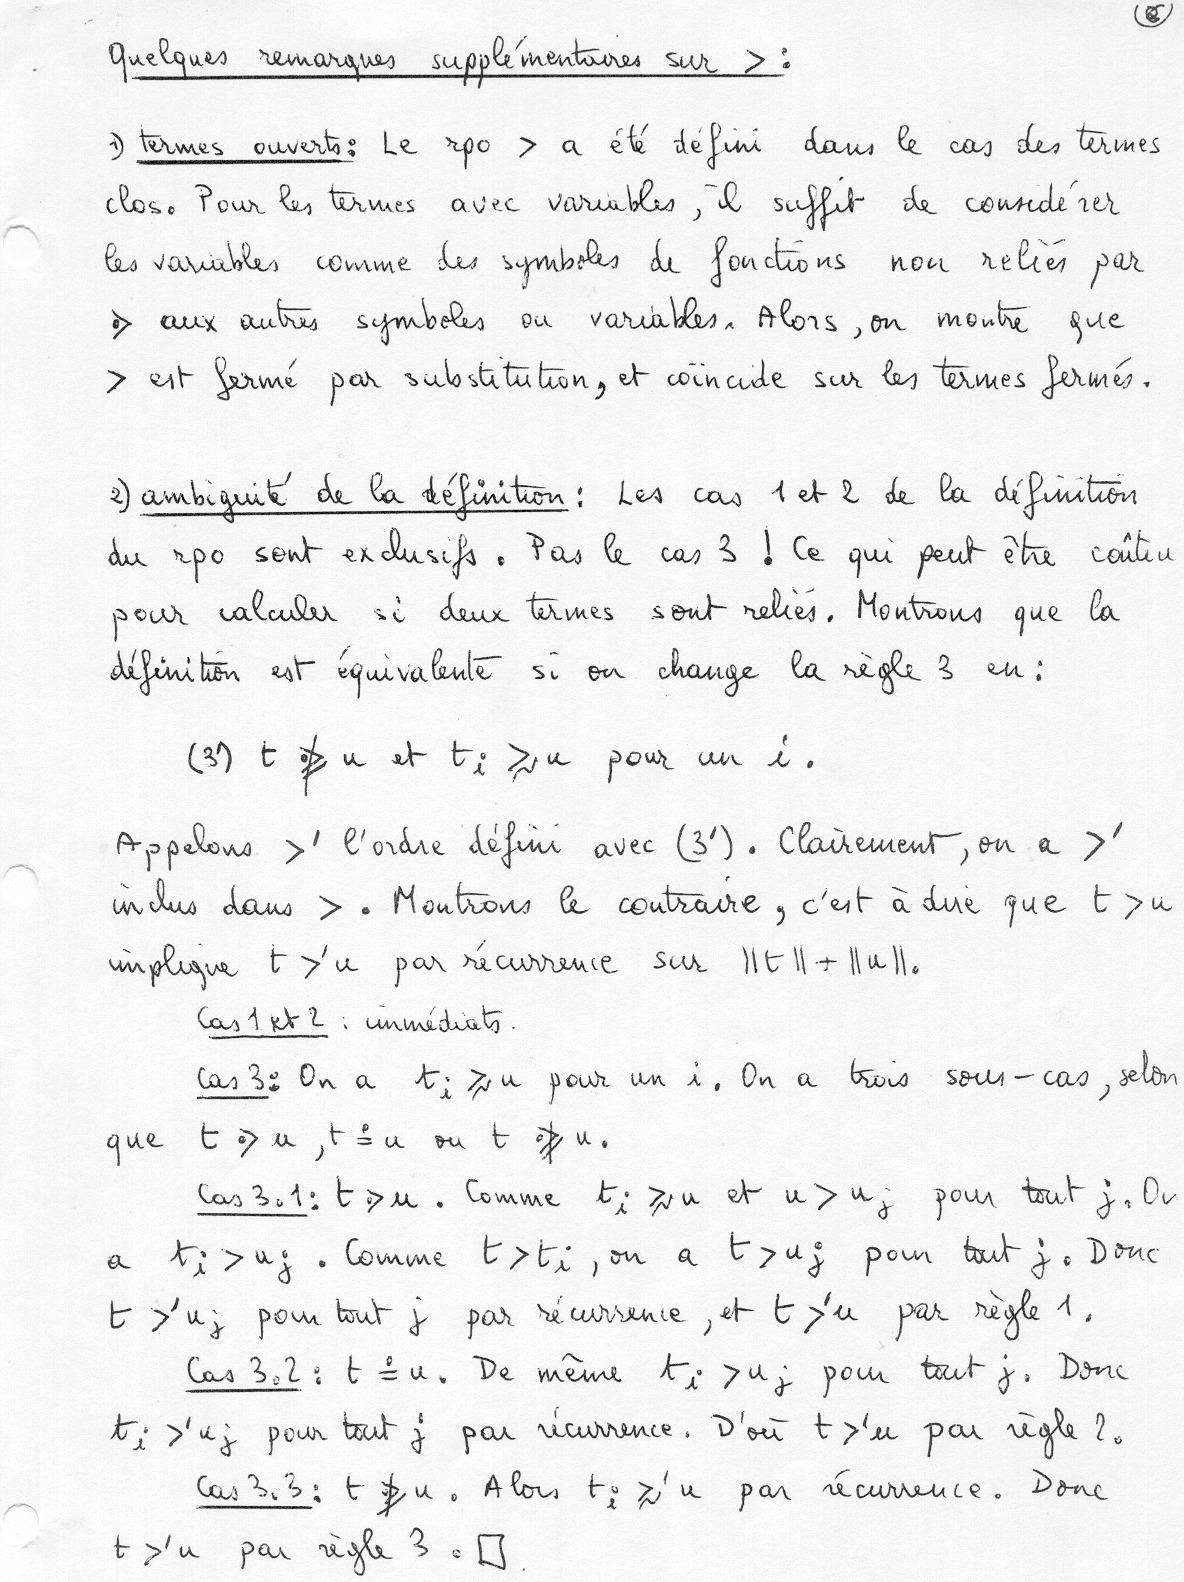 Quelques remarques supplémentaires sur > :
1) termes ouverts : Le rpo > a été défini dans le cas des termes
clos. Pour les termes avec variables, il suffit de considérer
les variables comme des symboles de fonctions non reliés par
⋗ aux autres symboles ou variables. Alors, on montre que
> est fermé par substitution, et coïncide sur les termes fermés.
2) ambiguité de la définition : Les cas 1 et 2 de la définition
du rpo sont exclusifs. Pas le cas 3 ! Ce qui peut être coûteu
pour calculer si deux termes sont reliés. Montrons que la
définition est équivalente si on change la règle 3 en :
(3') t ⋗̸ u et tᵢ ≳ u pour un i.
Appelons >' l'ordre défini avec (3'). Clairement, on a >'
inclus dans >. Montrons le contraire, c'est à dire que t > u
implique t >' u par récurrence sur ||t|| + ||u||.
Cas 1 et 2 : immédiats.
Cas 3 : On a tᵢ ≳ u pour un i. On a trois sous-cas, selon
que t ⋗ u, t ≐ u ou t ⋗̸ u.
Cas 3.1 : t ⋗ u. Comme tᵢ ≳ u et u > uⱼ pour tout j. On
a tᵢ > uⱼ. Comme t > tᵢ, on a t > uⱼ pour tout j. Donc
t >' uⱼ pour tout j par récurrence, et t >' u par règle 1.
Cas 3.2 : t ≐ u. De même tᵢ > uⱼ pour tout j. Donc
tᵢ >' uⱼ pour tout j par récurrence. D'où t >' u par règle 2.
Cas 3.3 : t ⋗̸ u. Alors tᵢ ≳' u par récurrence. Donc
t >' u par règle 3. □